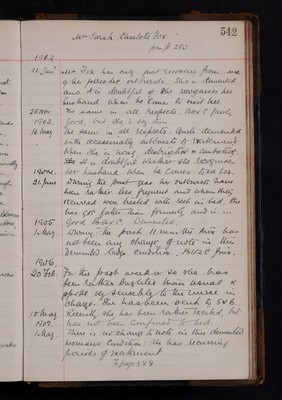 542
Mrs Sarah Charlotte Fox
from p. 293.
1902
21 Jan'y Mrs Fox has only just recovered from one
of her periodic outbursts. She is demented
and it is doubtful if she recognises her
husband when he came to visit her.
25 Nov. The same in all respects. B.H. & C fairly
1903. good, but she is thin
16 May. The same in all respects. Quite demented
with occasionally outbursts of excitement
when she is noisy, destructive & combative.
It is doubtful whether she recognises
1904. her husband when he comes. B.H. & C.
21 June During the past year her outbursts have
been rather less frequent and when they
occurred were treated with rest in bed. She
has got fatter than formerly and is in
1905 good B.H. & C. Demented.
1 May. During the past 11 months there has
not been any change to note in this
demented lady's condition. B.H. & C fair.
1906.
20 Feb. For the past week or so she has
been rather brighter than usual &
spoke up sensibly to the nurse in
charge. She has been sent to
10 May Recently she has been rather excited, but
1907. has not been confined to bed.
1 May. There is no change to note in this demented
woman's condition: she has recurring
periods of excitement
To page 588